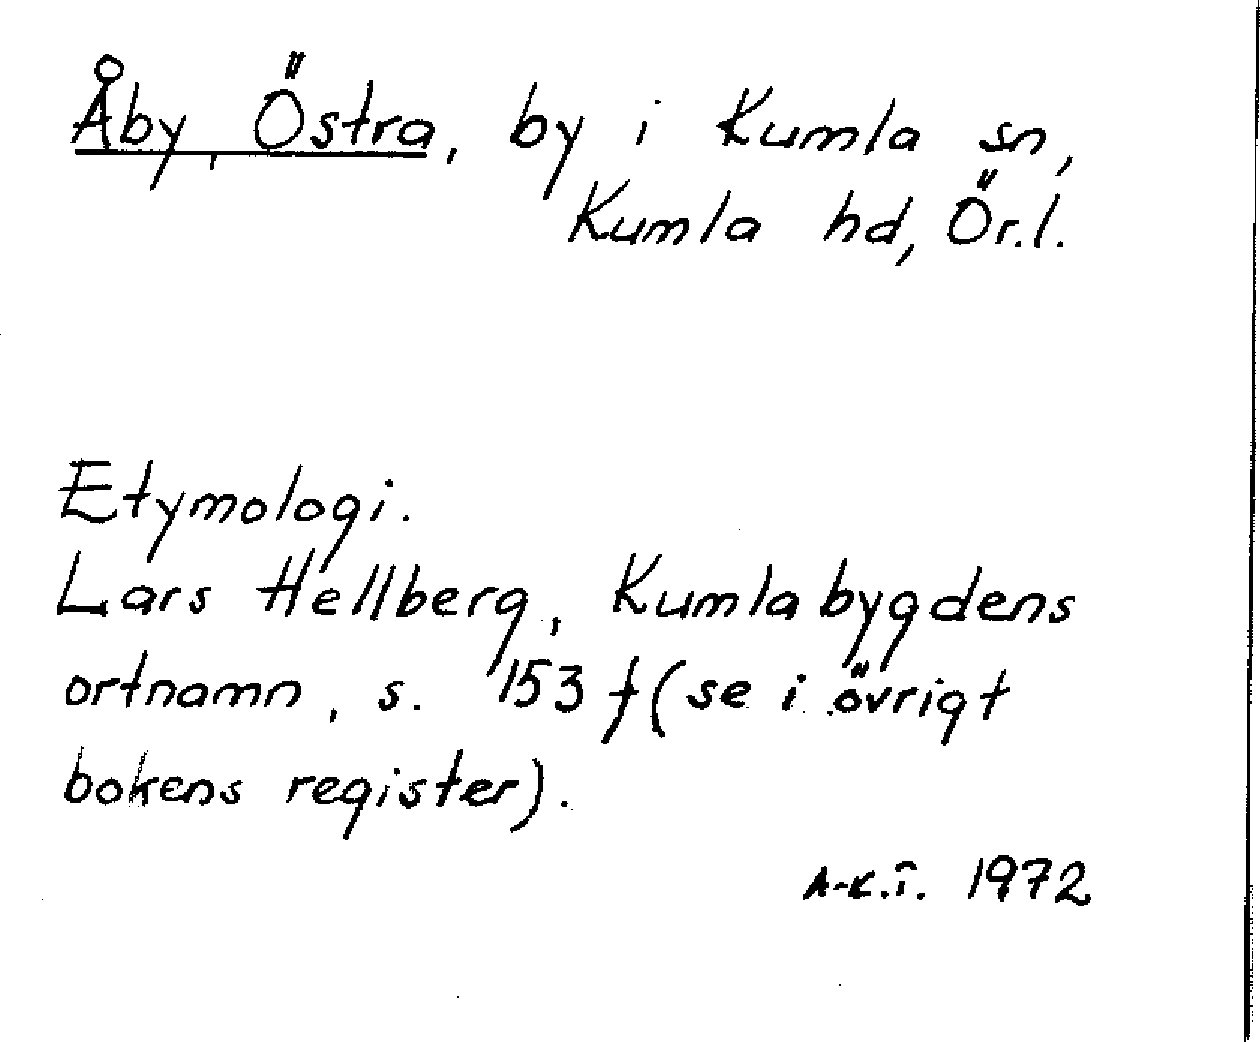 Åby, Östra, by i Kumla sn,
Kumla hd, Ör.l.
Etymologi.
Lars Hellberg, Kumlabygdens
ortnamn, s. 153 f (se i övrigt
bokens register).
A-K.I. 1972